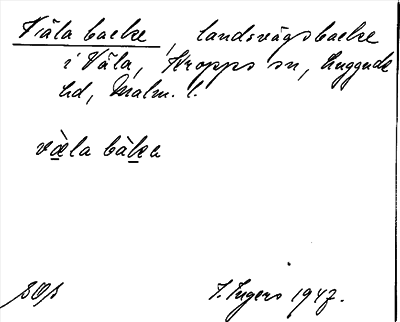 Väla backe, landsvägsbacke
i Väla, Kropps sn, Luggude
hd, Malm. l.
væ̀la bàka
SOf
I. Ingers 1947.